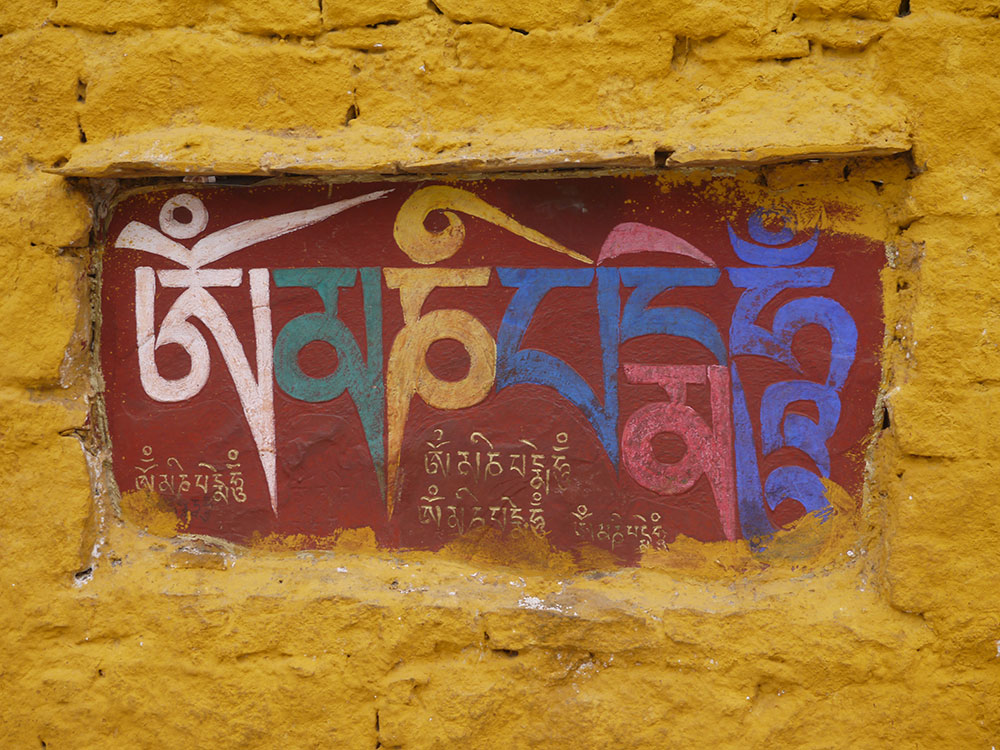 ༀམཎིཔདྨེཧཱུྃ
ཨོཾམཎིཔདྨེཧཱུྃ
ཨོཾམཎིཔདྨེཧཱུྃ
ཨོཾམཎིཔདྨེཧཱུྃ
ཨོཾམཎིཔདྨེཧཱུྃ